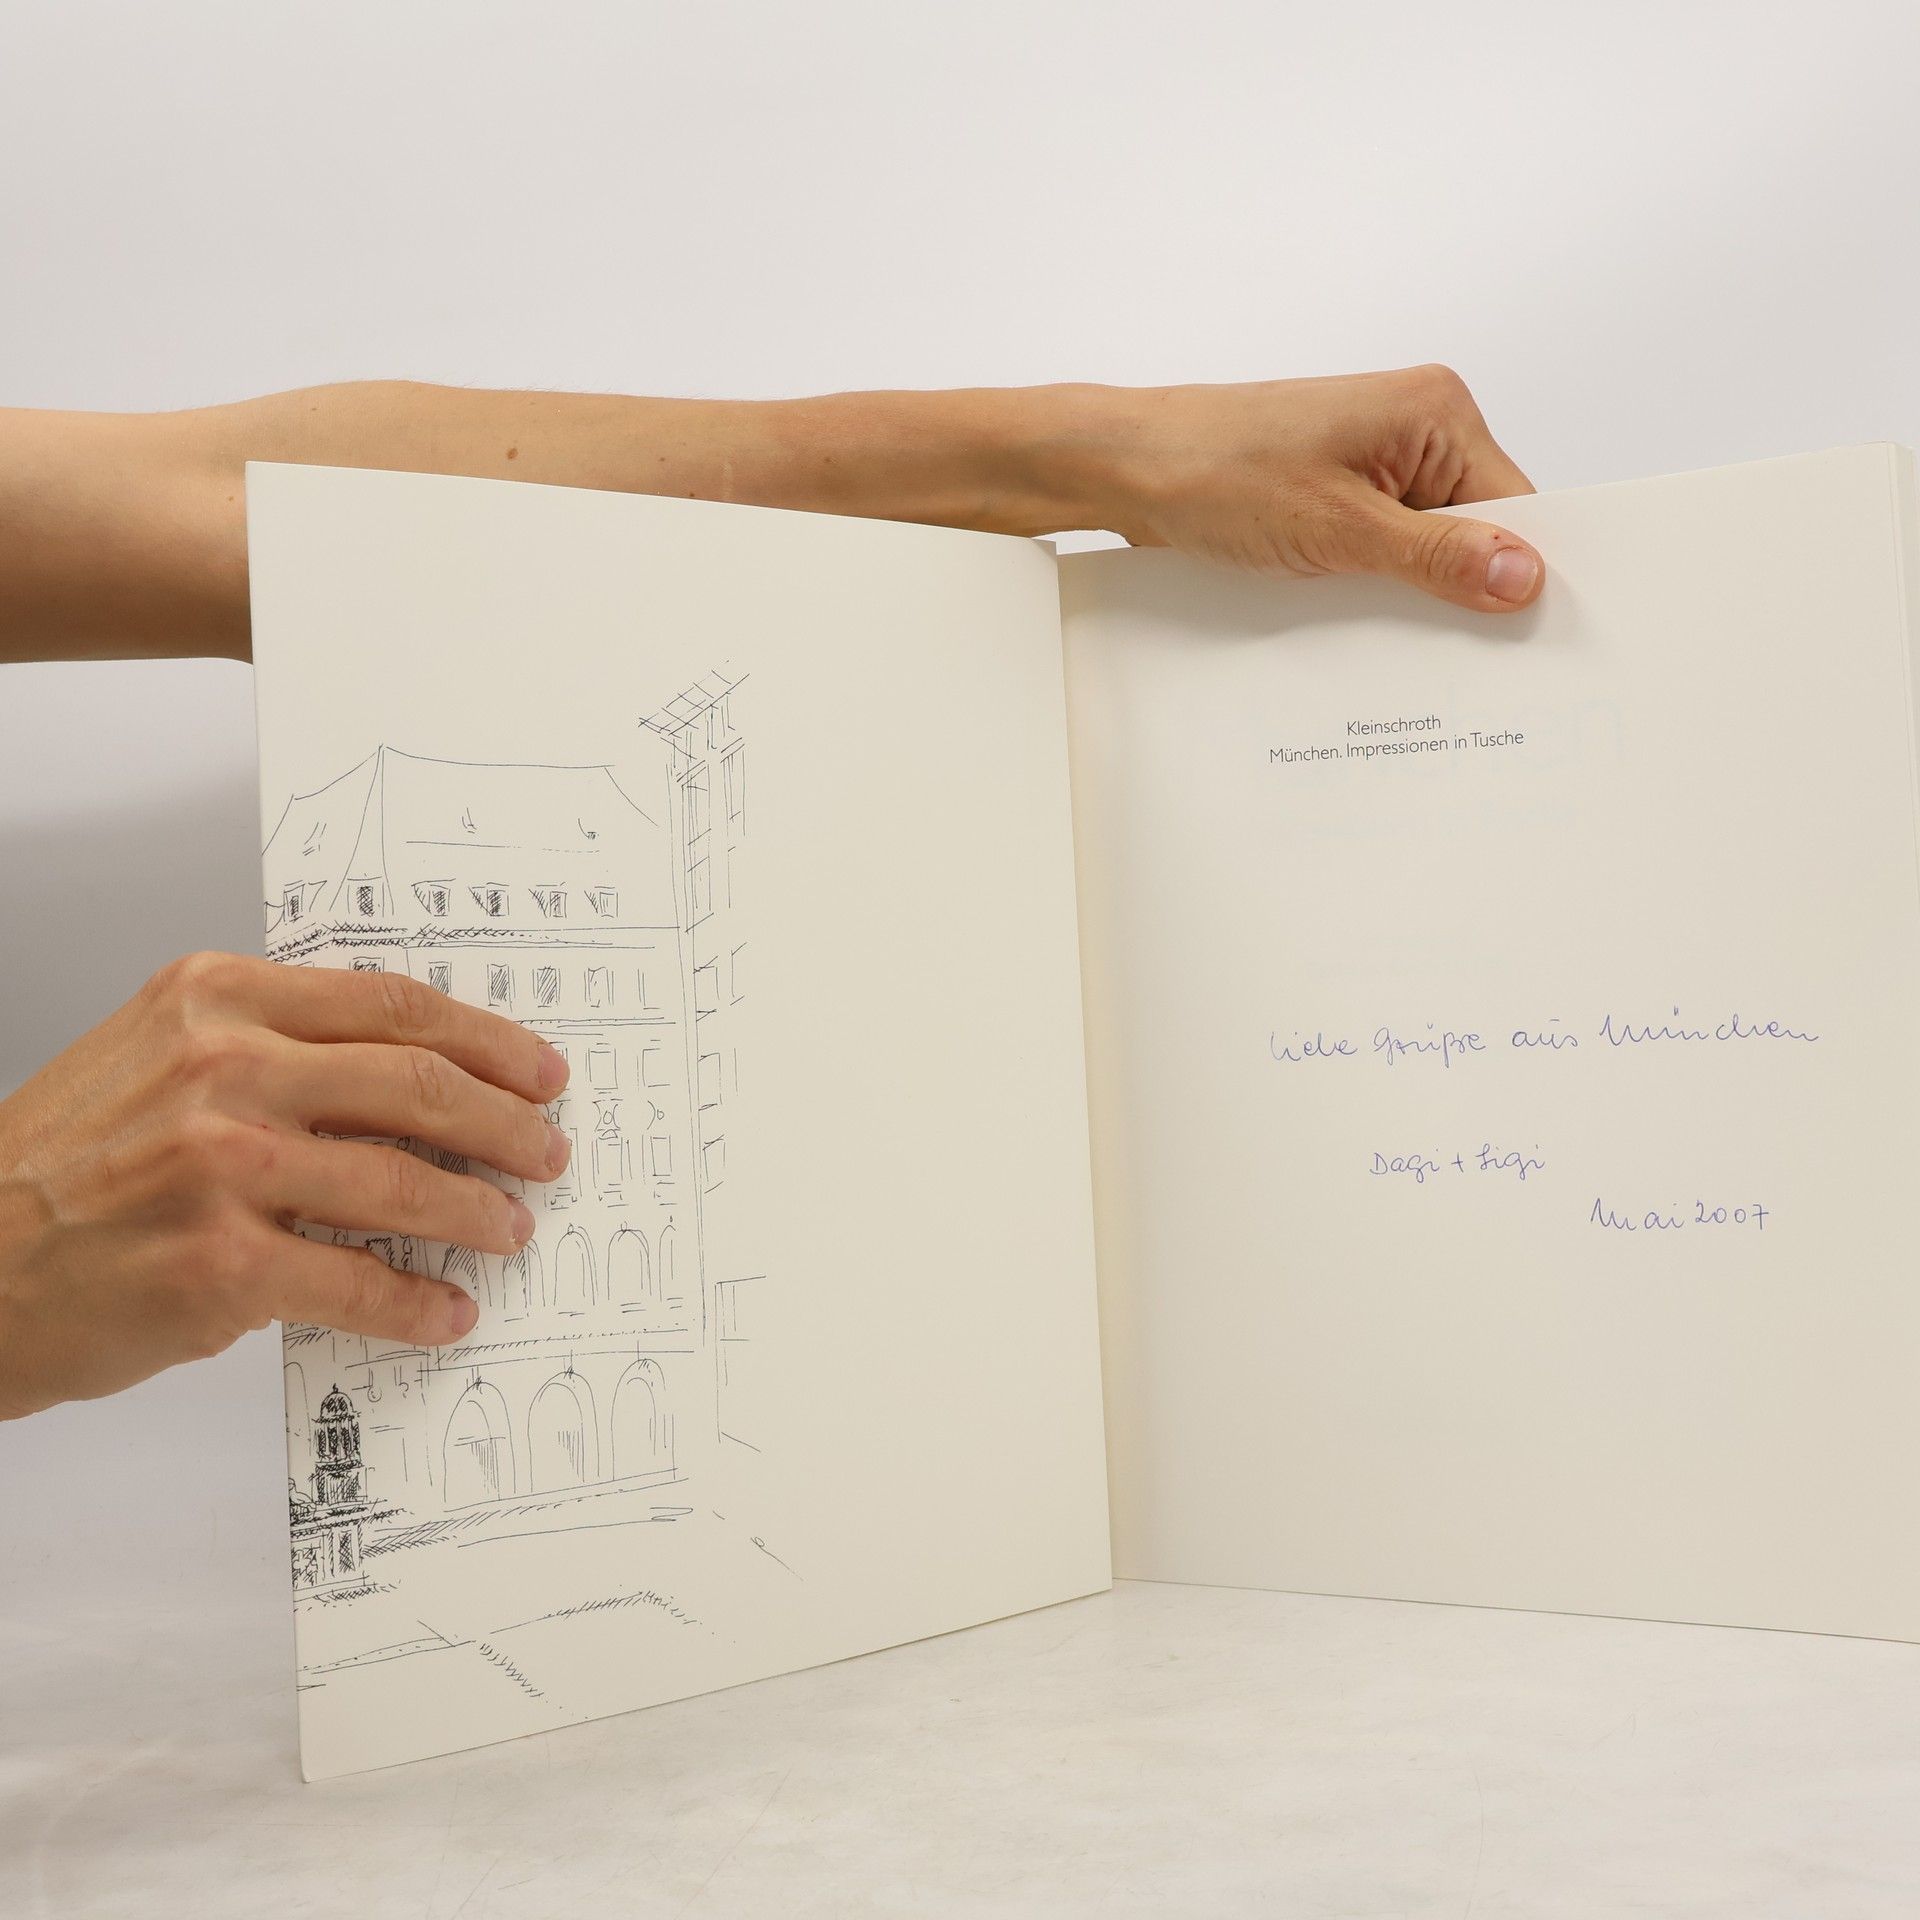 Kleinschroth
München. Impressionen in Tusche
liebe Grüße aus München
Dagi + Sigi
Mai 2007